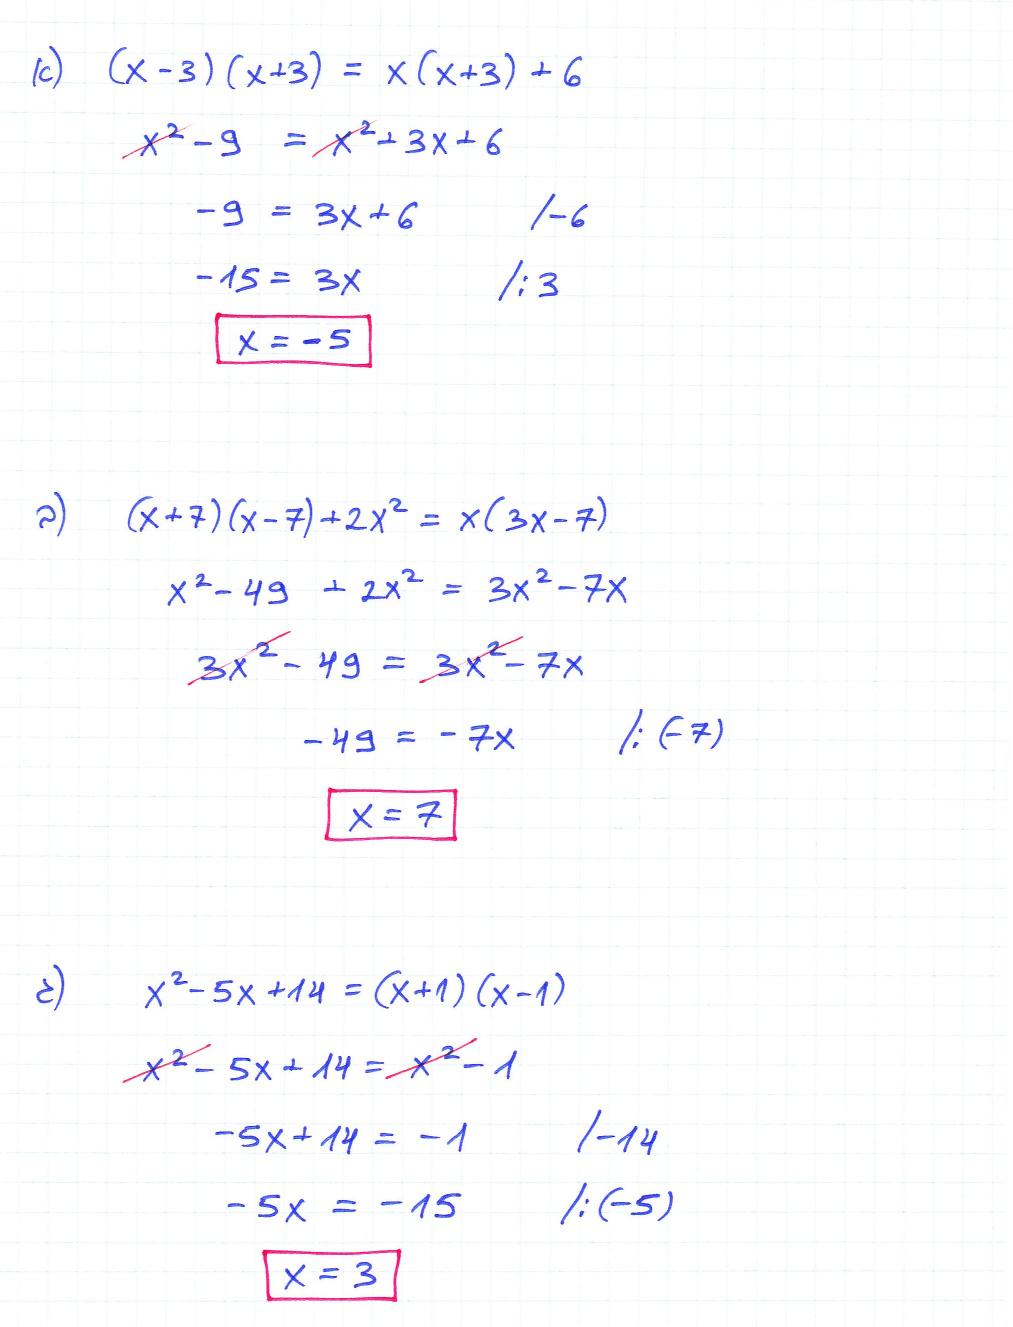 ק) (x-3)(x+3) = x(x+3) + 6
x² - 9 = x² + 3x + 6
-9 = 3x + 6 /-6
-15 = 3x /:3
x = -5
ר) (x+7)(x-7) + 2x² = x(3x-7)
x² - 49 + 2x² = 3x² - 7x
3x² - 49 = 3x² - 7x
-49 = -7x /:(-7)
x = 7
x² - 5x + 14 = (x+1)(x-1)
x² - 5x + 14 = x² - 1
-5x + 14 = -1 /-14
-5x = -15 /:(-5)
x = 3